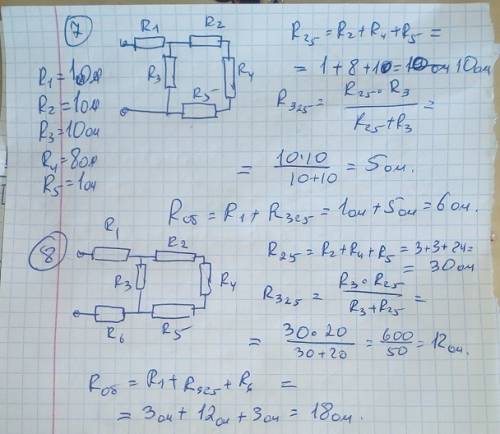 7
R1 R2
R3 R4
R5
R1=1Ом
R2=1Ом
R3=10Ом
R4=8Ом
R5=1Ом
R25=R2+R4+R5=
=1+8+1=10Ом
R325= R25·R3 / R25+R3 =
= 10·10 / 10+10 = 5Ом.
Rоб=R1+R325=1Ом+5Ом=6Ом.
8
R1 R2
R3 R4
R6 R5
R25=R2+R4+R5=3+3+24=
=30Ом
R325= R3·R25 / R3+R25 =
= 30·20 / 30+20 = 600 / 50 = 12Ом.
Rоб=R1+R325+R6=
=3Ом+12Ом+3Ом=18Ом.